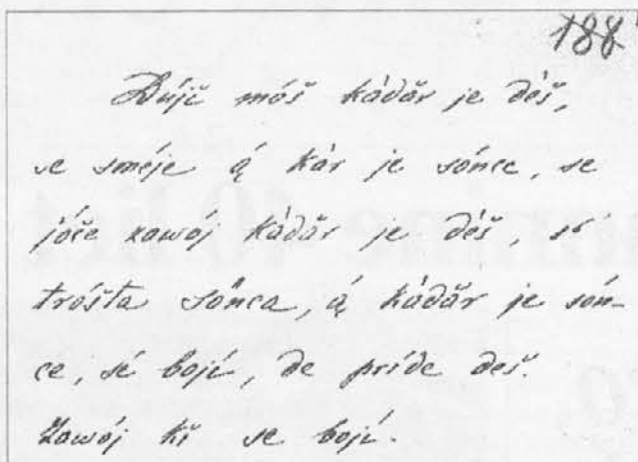 188
Dújč móš kádăr je dèš,
se smèje ą́ kár je sónce, se
jóče zawój kádăr je dèš, sé
tróšta sônca, ą́ kádăr je són-
ce, sé bojí, de príde deš.
Zawój kĭ se bojí.